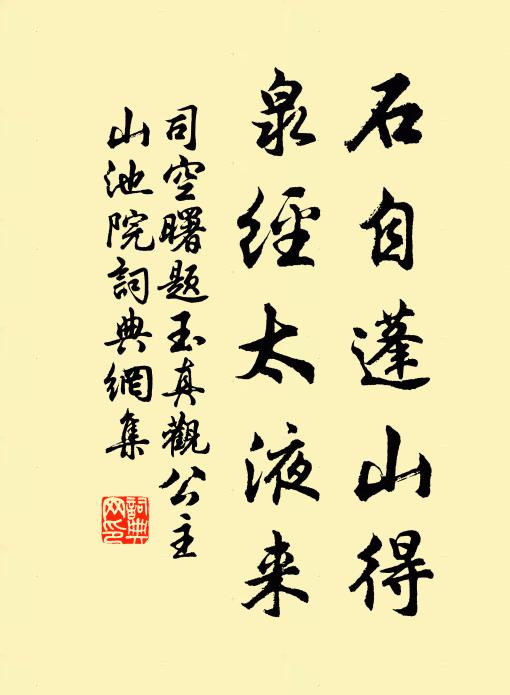 石自蓬山得
泉經太液来
司空曙題玉真觀公主
山池院詞典網集
詞典
网印